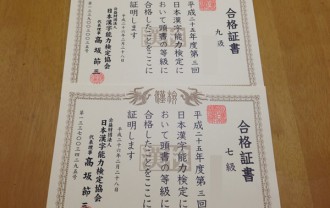 合格証書
九級
平成二十五年度第三回
日本漢字能力検定に
おいて頭書の等級に
合格したことをここに
証明します
平成二十六年二月二十八日
公益財団法人
日本漢字能力検定協会
代表理事 髙坂 節三
合格証書
七級
平成二十五年度第三回
日本漢字能力検定に
おいて頭書の等級に
合格したことをここに
証明します
平成二十六年二月二十八日
公益財団法人
日本漢字能力検定協会
代表理事 髙坂 節三